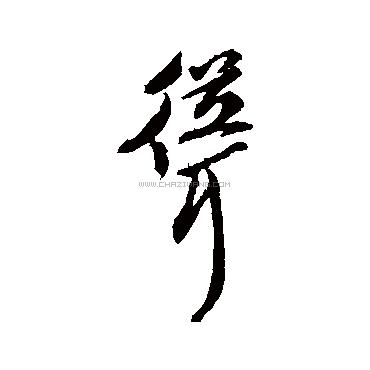 聳
WWW.CHAZIDIAN.COM